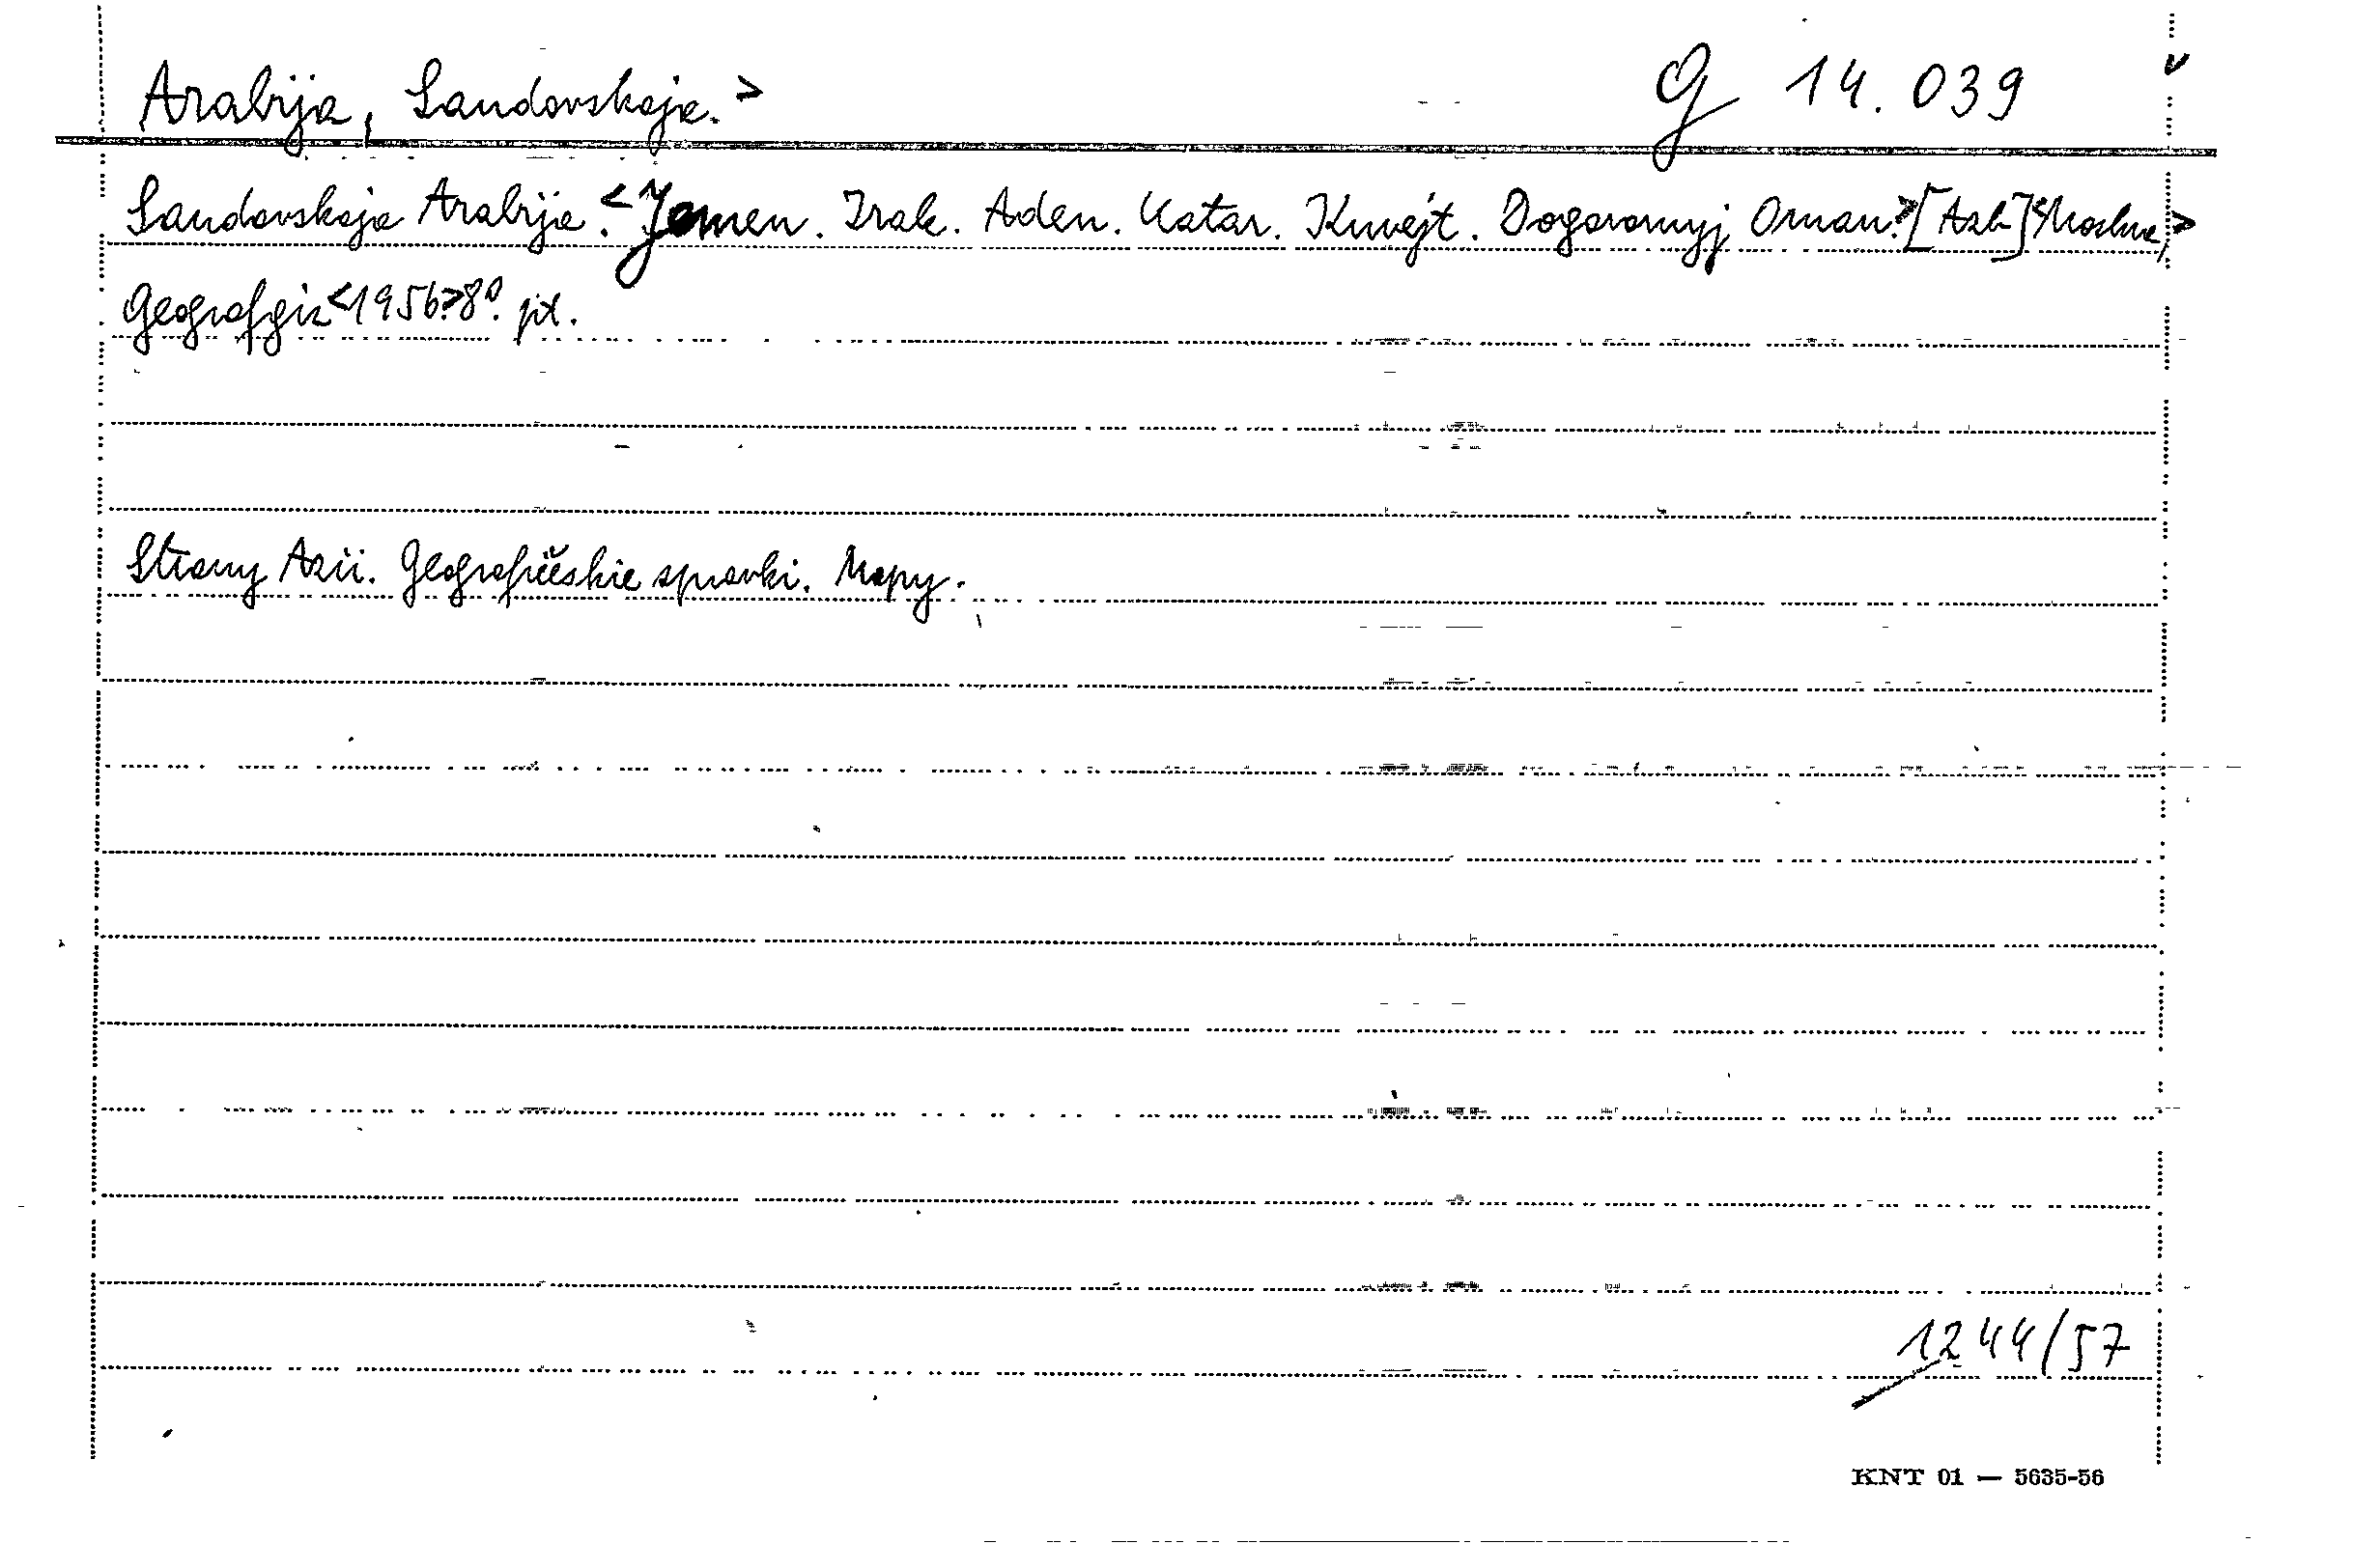 Arabija, Saudovskaja. > G 14.039
Saudovskaja Arabija. <Jemen. Irak. Aden. Katar. Kuvejt. Dogovornyj Oman.> [Azb] <Moskva,>
Geografgiz <1956.> 8°. pt.
Strany Azii. Geografičeskie spravki. Mapy.
1244/57
KNT 01 — 5635-56